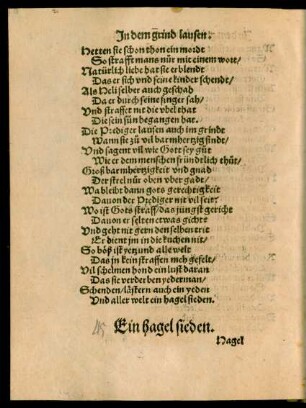 In dem grind lausen.
Hetten sie schon thon ein moidt
So strafft mans nůr mit einem wort/
Natůrlich liebt hat sie erblendt
Das er sich vnd seine kinder schendt/
Als Heli selber auch geschah
Da er durch seine finger sah/
Vnd straffet nit die vbel that
Die sein sün begangen hat.
Die Prediger lausen auch im grinde
Wann sie zů vil barmhertzig sindt/
Vnd sagent vil wie Gott sey gůt
Wie er dem menschen früntlich thůt/
Groß barmhertzigkeit vnd gnad
Der strel nür oben vber gadt/
Wa bleibt dann gots gerechtigkeit
Dauon der Prediger nit vil seit?
Wo ist Gots straff/das jüngst gericht
Dauon er selten etwas gicht?
Vnd geht nit gern den selben trit
Er dient jm in die kuchen nit/
So böß ist yetzund alle welt
Das jn kein straffen meh gefelt/
Vil schelmen hond ein lust daran
Das sie verderben yederman/
Schenden/lästern auch ein yeden
Vnd aller welt ein hagel sieden.
Ein hagel sieden.
Hagel